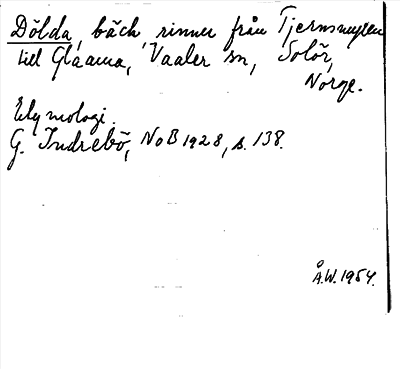 Dölda, bäck, rinner från Tjernsmyren
till Glåama, Vaaler sn, Solör,
Norge.
Etymologi.
G. Indrebö, NoB 1928, s. 138.
Å.W. 1954.